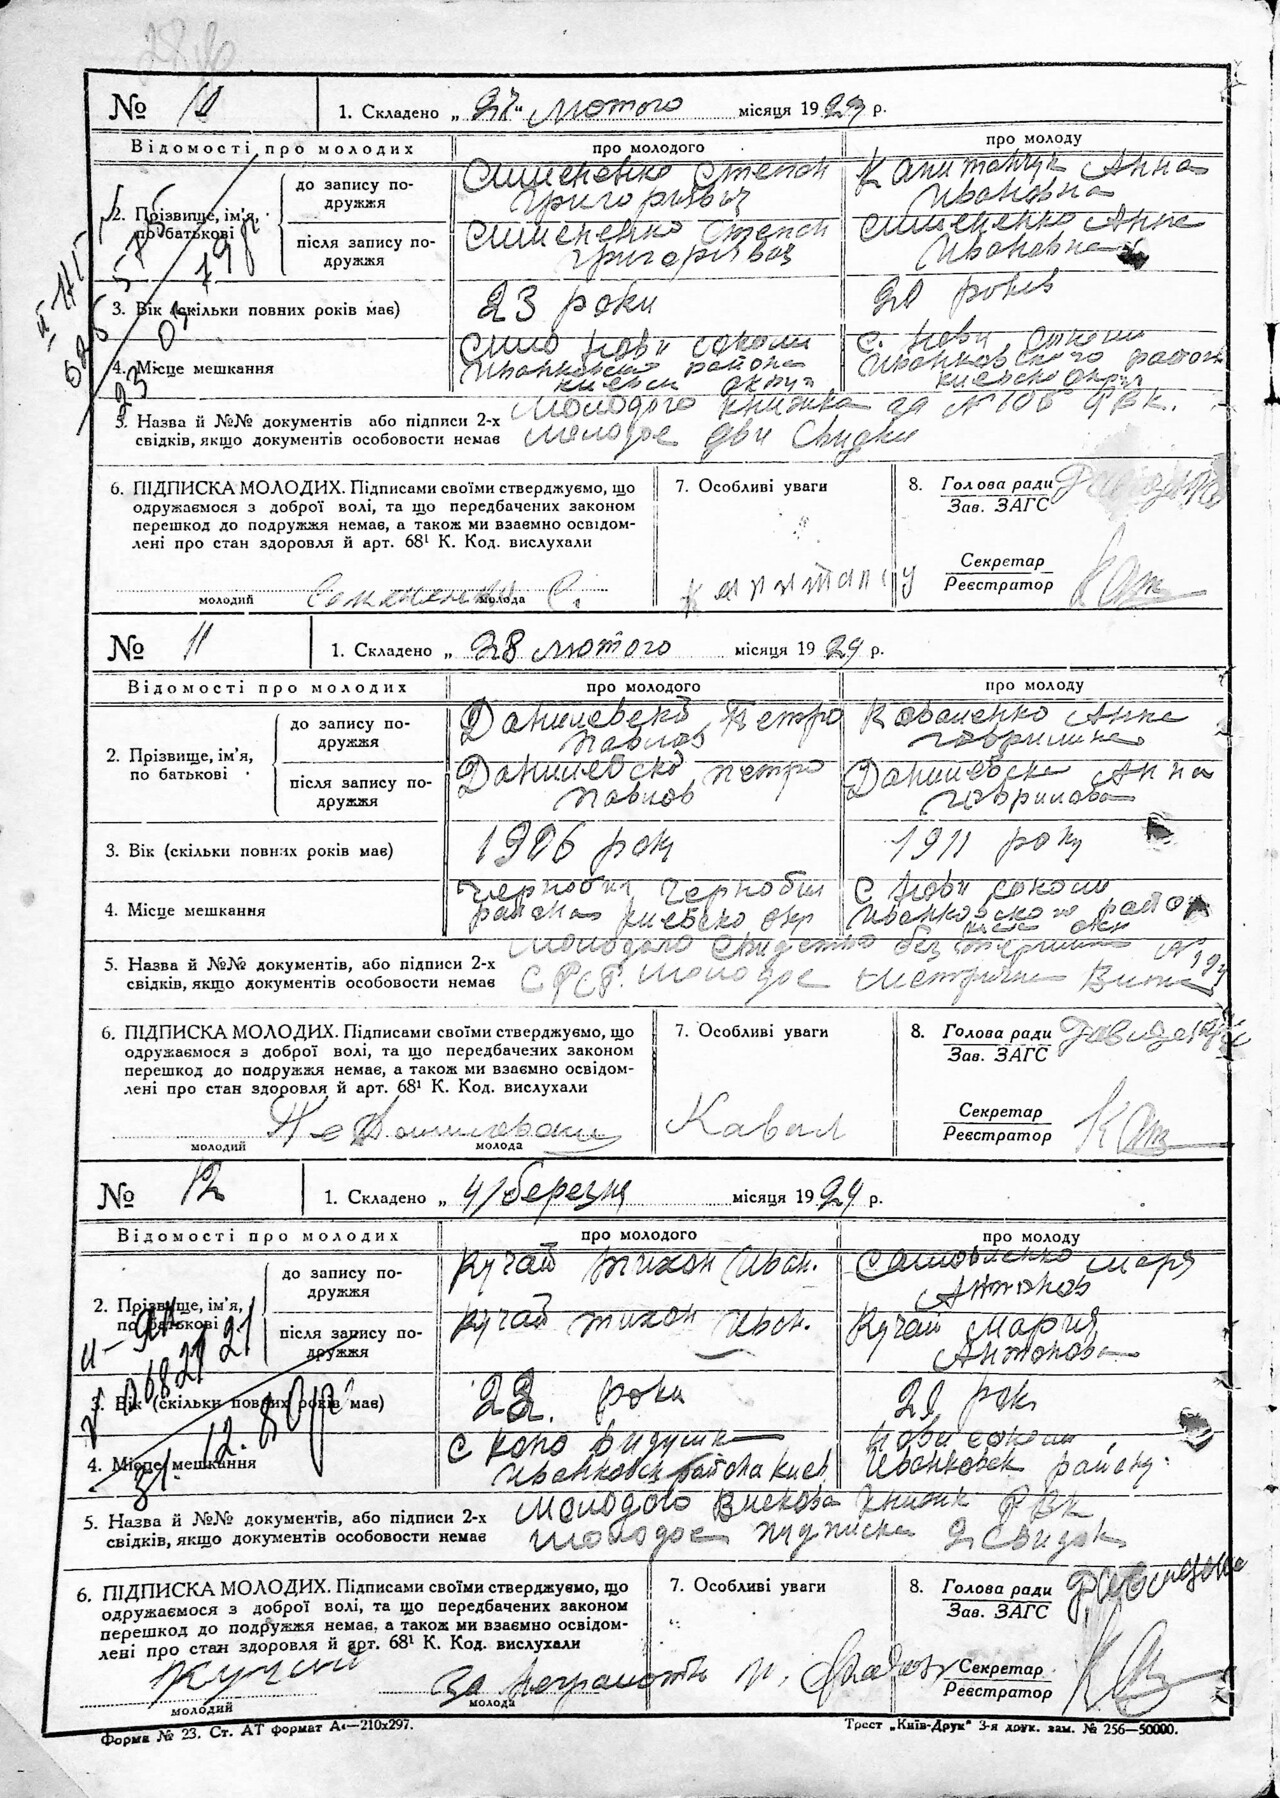 № 10 1. Складено „ 27 " лютого місяця 1929 р.
Відомості про молодих про молодого про молоду
2. Прізвище, ім'я, по батькові
до запису по-
дружжя
Симененко Степан
Григорівич
Капитанчук Анна
Ивановна
після запису по-
дружжя
Симененко Степан
Григорівич
Симененко Анна
Ивановна
3. Вік (скільки повних років має) 23 роки 20 років
4. Місце мешкання
Село Нови Соколи
Иванковско района
киевск округ
с. Нови Соколи
Иванковского район
киевско округ
5. Назва й №№ документів або підписи 2-х
свідків, якщо документів особовости немає
Молодого книжка за № 106 РВК.
Молодое два Свидки
6. ПІДПИСКА МОЛОДИХ. Підписами своїми стверджуємо, що
одружаємося з доброї волі, та що передбачених законом
перешкод до подружжя немає, а також ми взаємно освідом-
лені про стан здоровля й арт. 68¹ К. Код. вислухали
7. Особливі уваги
8. Голова ради
Зав. ЗАГС
Секретар
Реєстратор
молодий молода
Капитанчу
№ 11 1. Складено „ 28 лютого місяця 1929 р.
Відомості про молодих про молодого про молоду
2. Прізвище, ім'я,
по батькові
до запису по-
дружжя
Данилевско Петро
Павлов
Коваленко Анна
після запису по-
дружжя
Данилевско Петро
Павлов
Данилевска Анна
Гаврилова
3. Вік (скільки повних років має) 1906 рок 1911 року
4. Місце мешкання
Чернобил Чернобил
района киевско окр
с Нови Соколи
Иванковского район
киев окр
5. Назва й №№ документів, або підписи 2-х
свідків, якщо документів особовости немає
Молодого
Молодое
6. ПІДПИСКА МОЛОДИХ. Підписами своїми стверджуємо, що
одружаємося з доброї волі, та що передбачених законом
перешкод до подружжя немає, а також ми взаємно освідом-
лені про стан здоровля й арт. 68¹ К. Код. вислухали
7. Особливі уваги
8. Голова ради
Зав. ЗАГС
Секретар
Реєстратор
молодий молода
Кавал
№ 12 1. Складено „ 4/березня місяця 1929 р.
Відомості про молодих про молодого про молоду
2. Прізвище, ім'я,
по батькові
до запису по-
дружжя
Кучай Тихон Иван.
Самойленко Мария
Антонов
після запису по-
дружжя
Кучай Тихон Иван.
Кучай Мария
Антонова
3. Вік (скільки повних років має) 22. роки 21 рок
4. Місце мешкання
Иванковск района киев
Нови Соколи
Иванковск району
5. Назва й №№ документів, або підписи 2-х
свідків, якщо документів особовости немає
Молодого книжк РВК
Молодое підписка 2 Свидок
6. ПІДПИСКА МОЛОДИХ. Підписами своїми стверджуємо, що
одружаємося з доброї волі, та що передбачених законом
перешкод до подружжя немає, а також ми взаємно освідом-
лені про стан здоровля й арт. 68¹ К. Код. вислухали
7. Особливі уваги
8. Голова ради
Зав. ЗАГС
Секретар
Реєстратор
Кучай
за неграмотн
молодий молода
Форма № 23. Ст. АТ формат А4—210x297. Трест „Київ-Друк" 3-я друк. зам. № 256—50000.